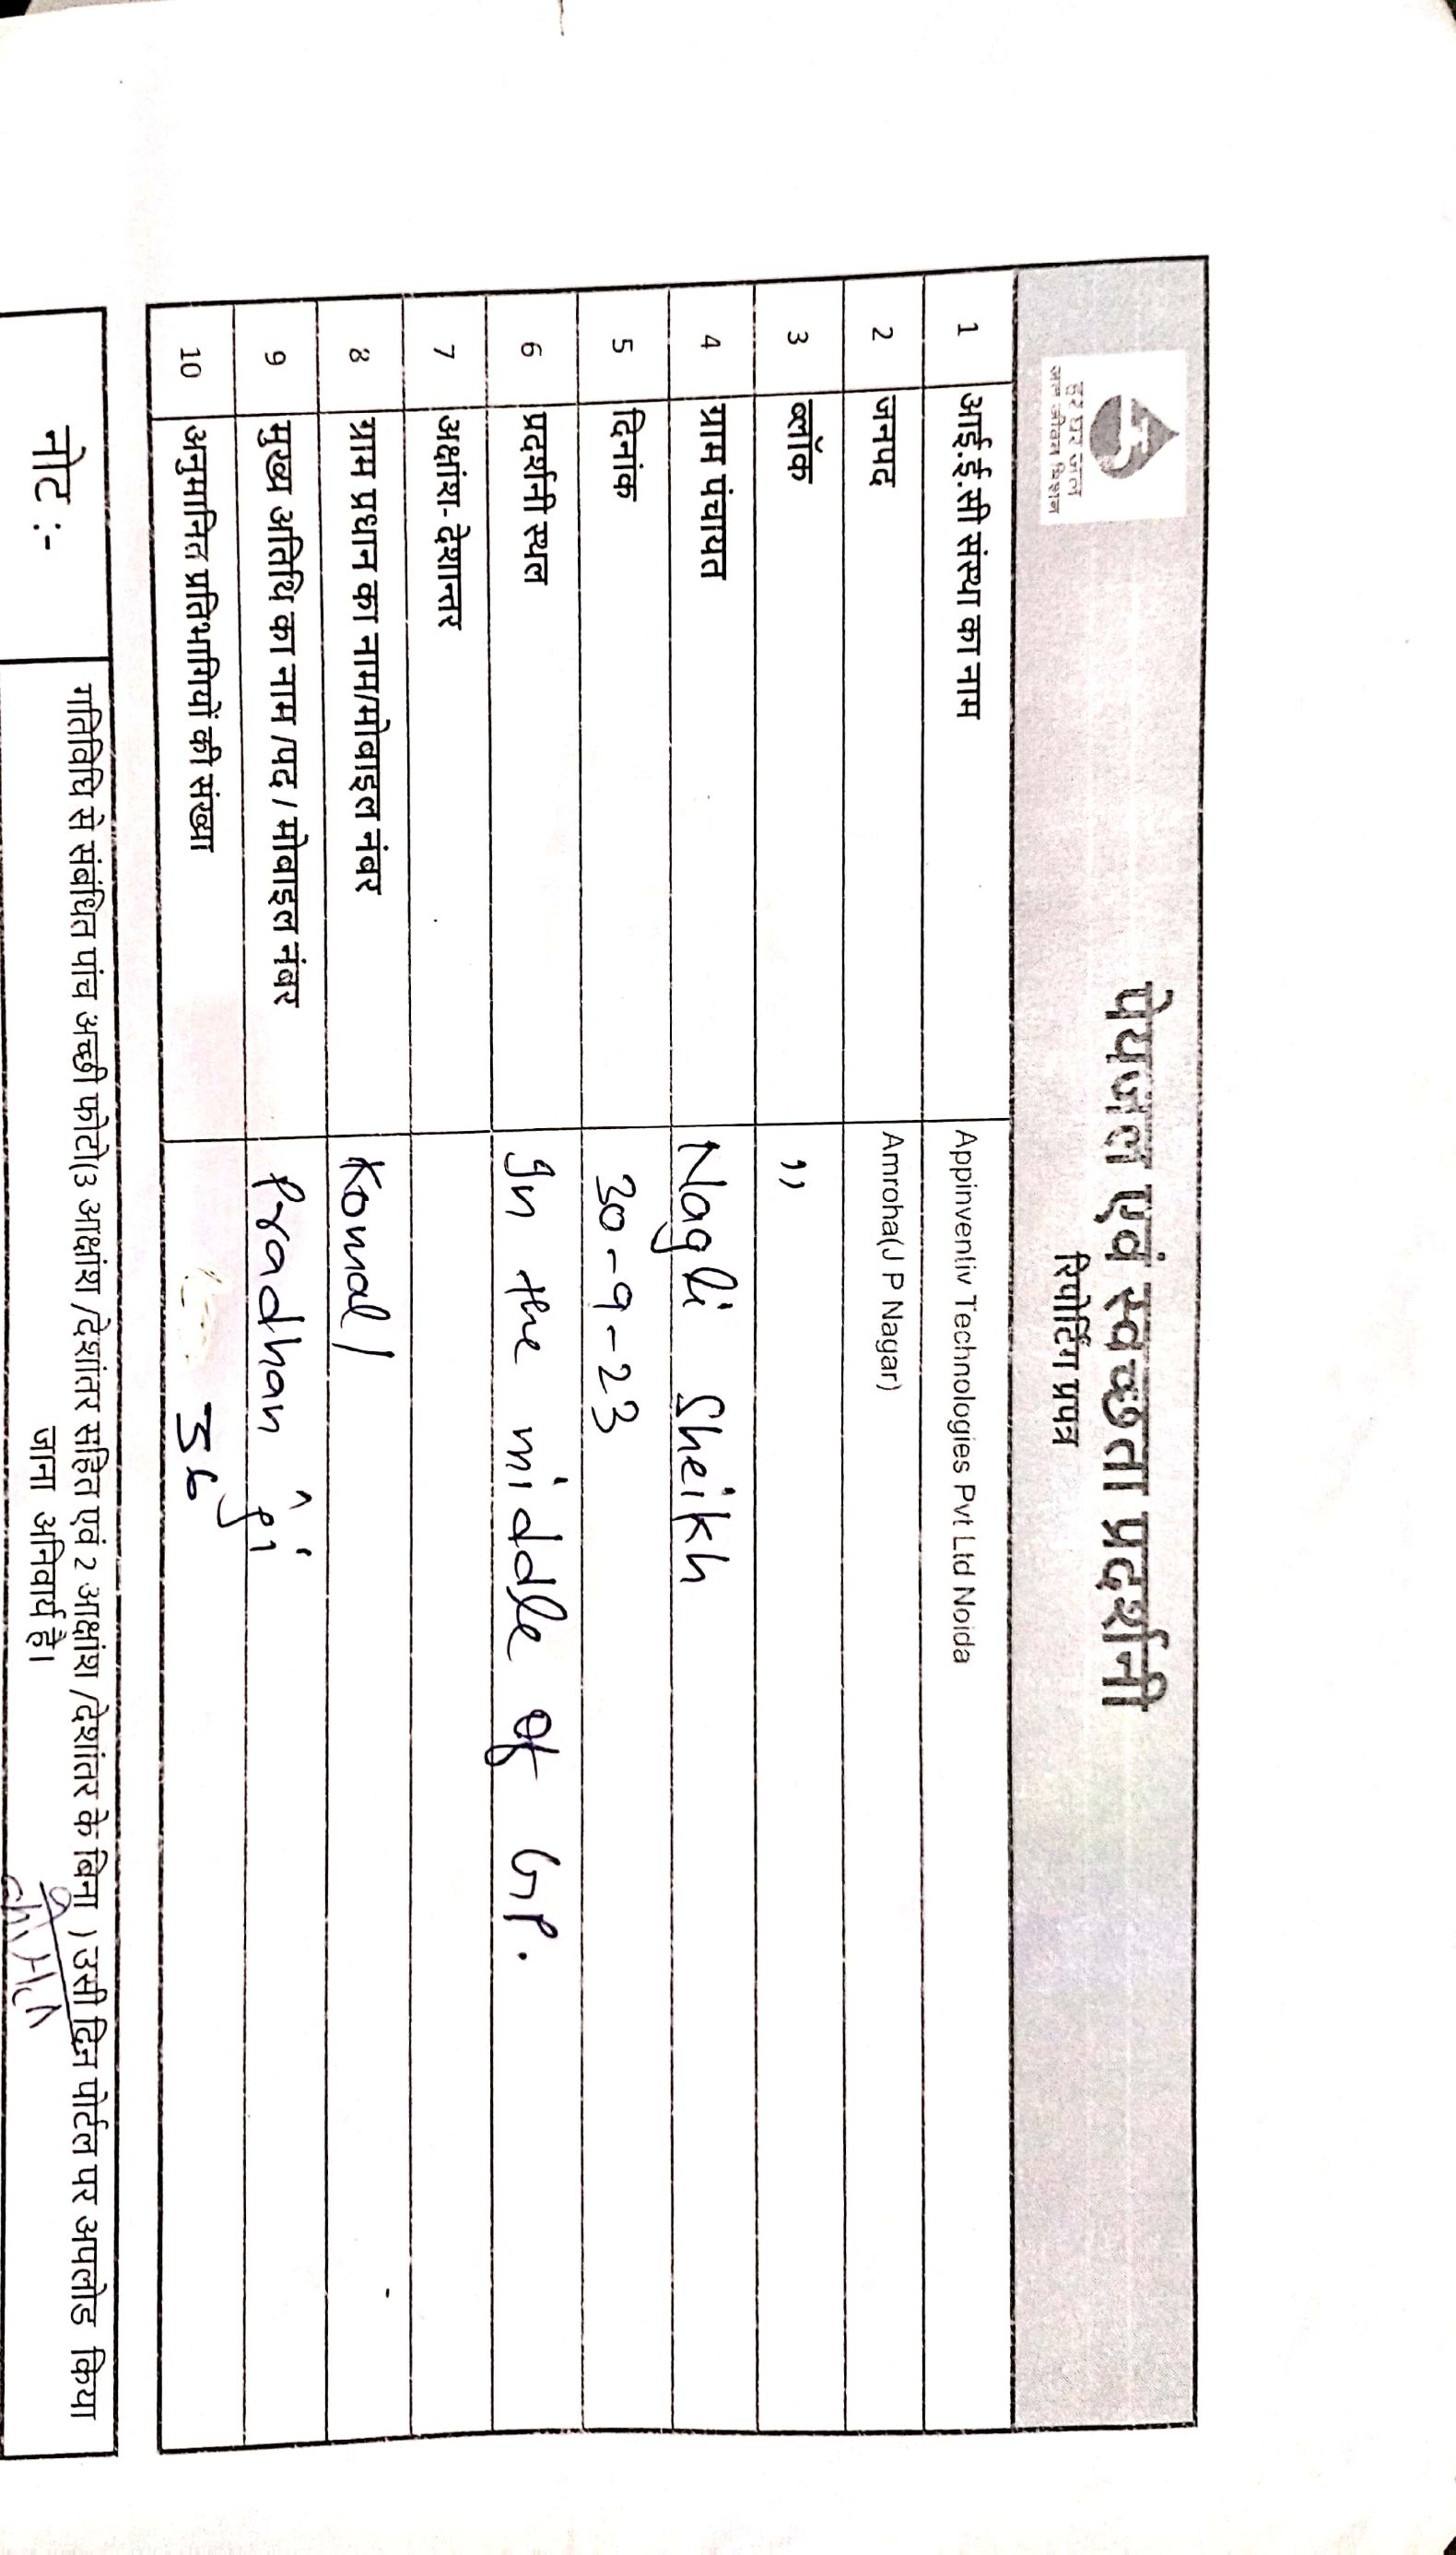 हर घर जल
जल जीवन मिशन
पेयजल एवं स्वच्छता प्रदर्शनी
रिपोर्टिंग प्रपत्र
1 आई.ई.सी संस्था का नाम Appinventiv Technologies Pvt Ltd Noida
2 जनपद Amroha(J P Nagar)
3 ब्लॉक ,,
4 ग्राम पंचायत Nagli Sheikh
5 दिनांक 30-9-23
6 प्रदर्शनी स्थल In the middle of GP.
7 अक्षांश- देशान्तर
8 ग्राम प्रधान का नाम/मोबाइल नंबर Komal /
9 मुख्य अतिथि का नाम /पद / मोबाइल नंबर Pradhan ji
10 अनुमानित प्रतिभागियों की संख्या 56
नोट :- गतिविधि से संबंधित पांच अच्छी फोटो(3 आक्षांश /देशांतर सहित एवं 2 आक्षांश /देशांतर के बिना ) उसी दिन पोर्टल पर अपलोड किया
जाना अनिवार्य है।